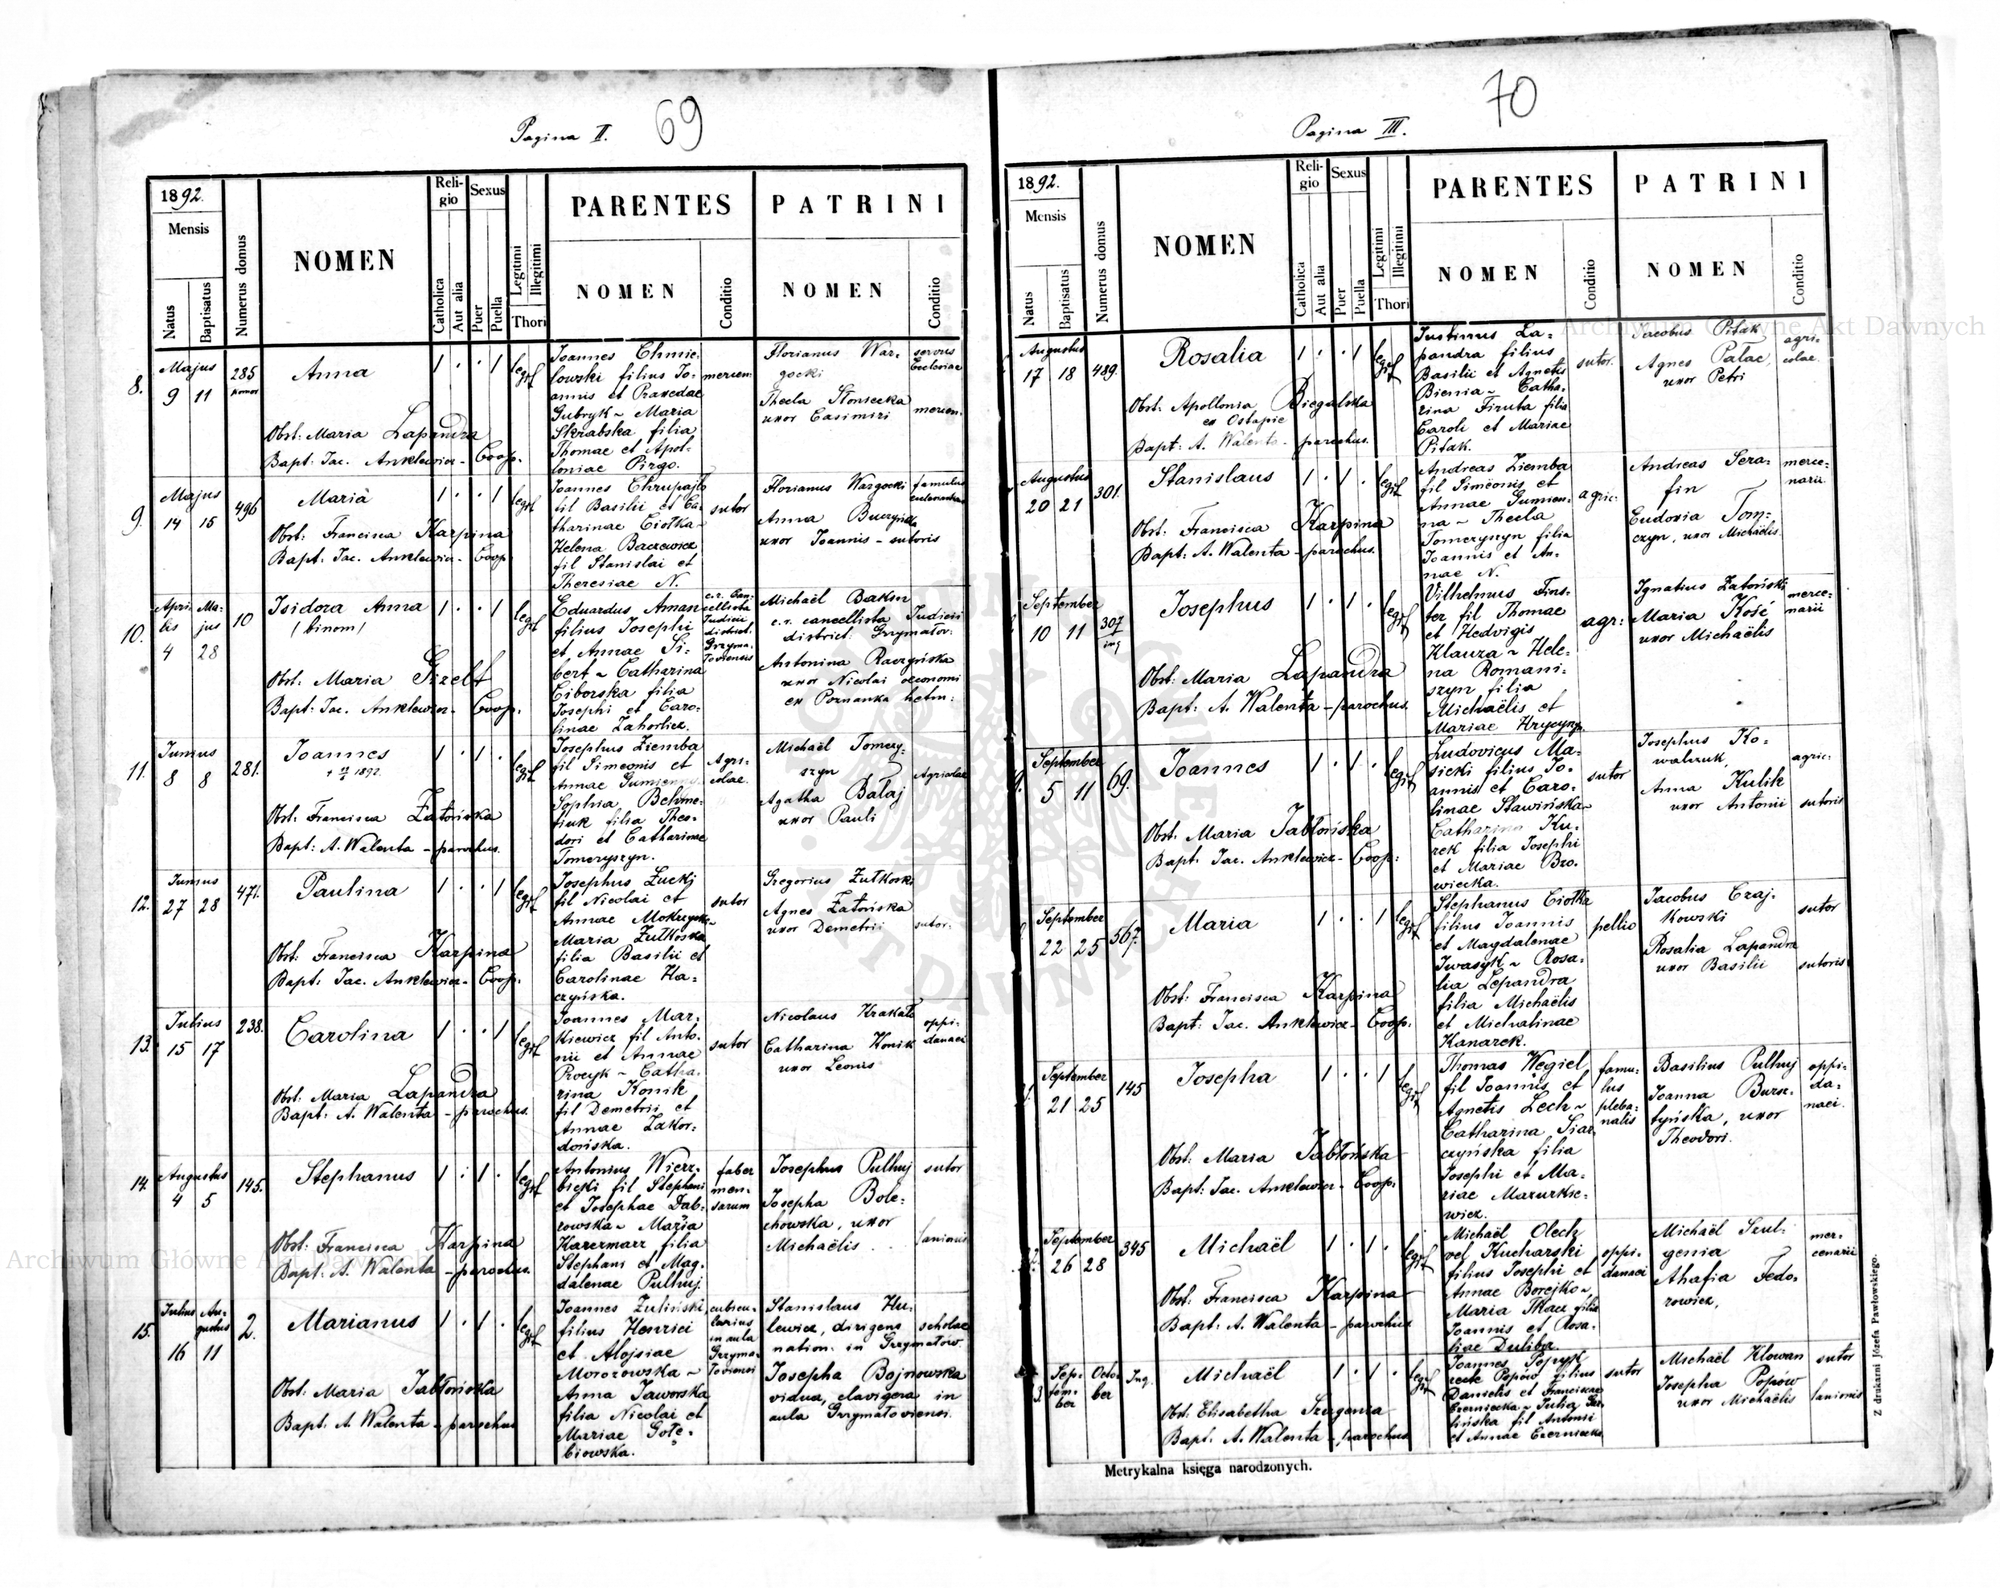 Pagina II.
69
1892.
Mensis
Natus
Baptisatus
Numerus domus
NOMEN
Religio
Catholica
Aut alia
Sexus
Puer
Puella
Legitimi
Illegitimi
Thori
PARENTES
NOMEN
Conditio
PATRINI
NOMEN
Conditio
8.
Majus
9 11
285
Anna
1 . . 1
Obst: Maria Lapandra
Bapt: Jac. Anklewicz - Coop.
Joannes Chmie-
lowski filius Jo-
annis et Praxedae
Gubryk ~ Maria
Skrabska filia
Thomae et Apol-
loniae Pirgo.
Florianus War-
gocki
servus
Ecclesiae
Thecla Słoniecka
uxor Casimiri
9.
Majus
14 15
496
Maria
1 . . 1
Obst: Francisca Karpina
Bapt: Jac. Anklewicz - Coop
Joannes Chrupajło
fil Basilii et Ca-
tharinae Ciołka ~
Helena Baczewicz
fil Stanislai et
Theresiae N.
sutor
Florianus Wargocki
famulus
Anna
uxor Joannis - sutoris
10.
Apri-
lis
4
Ma-
jus
28
10
Isidora Anna
/binom/
1 . . 1
Obst: Maria
Bapt: Jac. Anklewicz - Coop.
Eduardus Aman
filius Josephi
et Annae Si-
bert ~ Catharina
Ciborska filia
Josephi et Caro-
linae Zahorlicz.
c.r. Can-
cellista
Judicii
district.
Grzyma-
łoviensis
Michaël Bakun
c.r. cancellista Judicii
district: Grzymałov:
Antonina Raczyńska
uxor Nicolai oeconomi
ex Poznanka hetm:
11.
Junius
8 8
281.
Joannes
1 . 1 .
Obst: Francisca Zatońska
Bapt: A. Walenta - parochus.
Josephus Ziemba
fil Simeonis et
Annae Gumienna
Sophia Belome-
tiuk filia Theo-
dori et Catharinae
Tomeryszyn.
Agri-
colae.
Michaël Tomery-
szyn
Agricolae
Agatha Bałaj
uxor Pauli
12.
Junius
27 28
471.
Paulina
1 . . 1
Obst: Francisca Karpina
Bapt: Jac. Anklewicz - Coop.
Josephus Zuckj
fil Nicolai et
Annae Mokrzycka ~
Maria Żułkoska
filia Basilii et
Carolinae Ha-
czyńska.
sutor
Gregorius Żułkoski
Agnes Zatońska
uxor Demetrii
sutor.
13.
Julius
15 17
238.
Carolina
1 . . 1
Obst: Maria Lapandra
Bapt: A. Walenta - parochus.
Joannes Mar-
kiewicz fil Anto-
nii et Annae
Procyk ~ Catha-
rina Konik
fil Demetrii et
Annae Zakor-
dońska.
sutor
Nicolaus
oppi-
danaei
Catharina Konik
uxor Leonis
14.
Augustus
4 5
145.
Stephanus
1 . 1 .
Obst: Francisca Karpina
Bapt: A. Walenta - parochus.
Antonius Wierz-
bicki fil Stephani
et Josephae Dab-
rowska ~ Maria
Kazermarz filia
Stephani et Mag-
dalenae Pulhuj
faber
men-
sarum
Josephus Pulhuj
sutor
Josepha Bole-
chowska, uxor
Michaëlis
lanionis
15.
Julius
16
Au-
gustus
11
2.
Marianus
1 . 1 .
Obst: Maria Jabłońska
Bapt: A. Walenta - parochus
Joannes Zuliński
filius Henrici
et Alojsiae
Morozowska ~
Anna Jaworska
filia Nicolai et
Mariae Gołę-
biowska.
cubicu-
larius
in aula
Grzyma-
łoviensi
Stanislaus Hu-
lewicz, dirigens scholae
nation: in Grzymałów
Josepha Bojnowska
vidua, clavigera in
aula Grzymałoviensi.
Pagina III.
70
1892.
Mensis
Natus
Baptisatus
Numerus domus
NOMEN
Religio
Catholica
Aut alia
Sexus
Puer
Puella
Legitimi
Illegitimi
Thori
PARENTES
NOMEN
Conditio
PATRINI
NOMEN
Conditio
Augustus
17 18
489.
Rosalia
1 . . 1
Obst: Apollonia Biegalska
ex Ostapie
Bapt: A. Walenta - parochus.
Justinus La-
pandra filius
Basilii et Agnetis
Bienia ~ Catha-
rina Firuta filia
Caroli et Mariae
Pitak.
sutor.
Jacobus Pitak
agri-
colae.
Agnes Pałac
uxor Petri
Augustus
20 21
301.
Stanislaus
1 . 1 .
Obst: Francisca Karpina
Bapt: A. Walenta - parochus.
Andreas Ziemba
fil Simeonis et
Annae Gumien-
na ~ Thecla
Tomeryszyn filia
Joannis et An-
nae N.
agric:
Andreas Sera-
fin
merce-
narii
Eudoxia Tom-
czyn, uxor Michaëlis
September
10 11
307
Josephus
1 . 1 .
Obst: Maria Lapandra
Bapt: A. Walenta - parochus.
Vilhelmus Fins-
ter fil Thomae
et Hedvigis
Klauza ~ Hele-
na Romani-
szyn filia
Michaëlis et
Mariae Hrycyna
agr:
Ignatius Zatoński
merce-
narii
Maria Kość
uxor Michaëlis
September
5 11
69.
Joannes
1 . 1 .
Obst: Maria Jabłońska
Bapt: Jac. Anklewicz - Coop.
Ludovicus Ma-
sicki filius Jo-
annis et Caro-
linae Sławińska ~
Catharina Ku-
rek filia Josephi
et Mariae Bro-
wiecka.
sutor
Josephus Ko-
walczuk,
agric:
Anna Kulik
uxor Antonii
sutoris
September
22 25
567.
Maria
1 . . 1
Obst: Francisca Karpina
Bapt: Jac. Anklewicz - Coop.
Stephanus Ciołka
filius Joannis
et Magdalenae
Iwasyk ~ Rosa-
lia Lepandra
filia Michaëlis
et Michalinae
Kanarek.
pellio
Jacobus Czaj-
kowski
sutor
Rosalia Lapandra
uxor Basilii
sutoris
September
21 25
145
Josepha
1 . . 1
Obst: Maria Jabłońska
Bapt: Jac. Anklewicz - Coop.
Thomas Węgiel
fil Joannis et
Agnetis Lech ~
Catharina Siar-
czyńska filia
Josephi et Ma-
riae Mazurkie-
wicz.
famu-
lus
pleba-
nalis
Basilius Pulhuj
oppi-
da-
naei.
Joanna Bursz-
tyńska, uxor
Theodori.
September
26 28
345
Michaël
1 . 1 .
Obst: Francisca Karpina
Bapt: A. Walenta - parochus
Michaël Olech
vel Kucharski
filius Josephi et
Annae Borejko ~
Maria Tkacz filia
Joannis et Rosa-
liae Duliba.
oppi-
danaei
Michaël Szul-
genia
mer-
cenarii
Ahafia Fedo-
rowicz,
Sep-
tem-
ber
Octo-
ber
Inq.
Michaël
1 . 1 .
Obst: Elisabetha
Bapt: A. Walenta - parochus
Joannes Popyk
recte Popów filius
Danielis et Franciscae
Czerniecka ~ Julia
fil Antonii
et Annae Czerniecka
sutor
Michaël Klowan
sutor
Josepha Popów
uxor Michaëlis
lanionis
Metrykalna księga narodzonych.
Z drukarni Józefa Pawłowskiego.
Archiwum Główne Akt Dawnych
Archiwum Główne Akt Dawnych